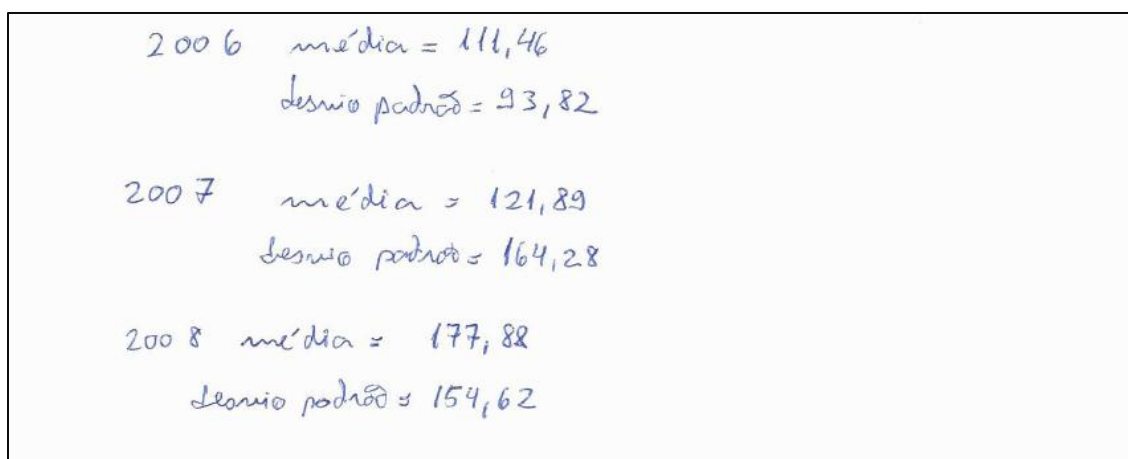 2006 média = 111,46
desvio padrão = 93,82
2007 média = 121,89
desvio padrão = 164,28
2008 média = 177,88
desvio padrão = 154,62